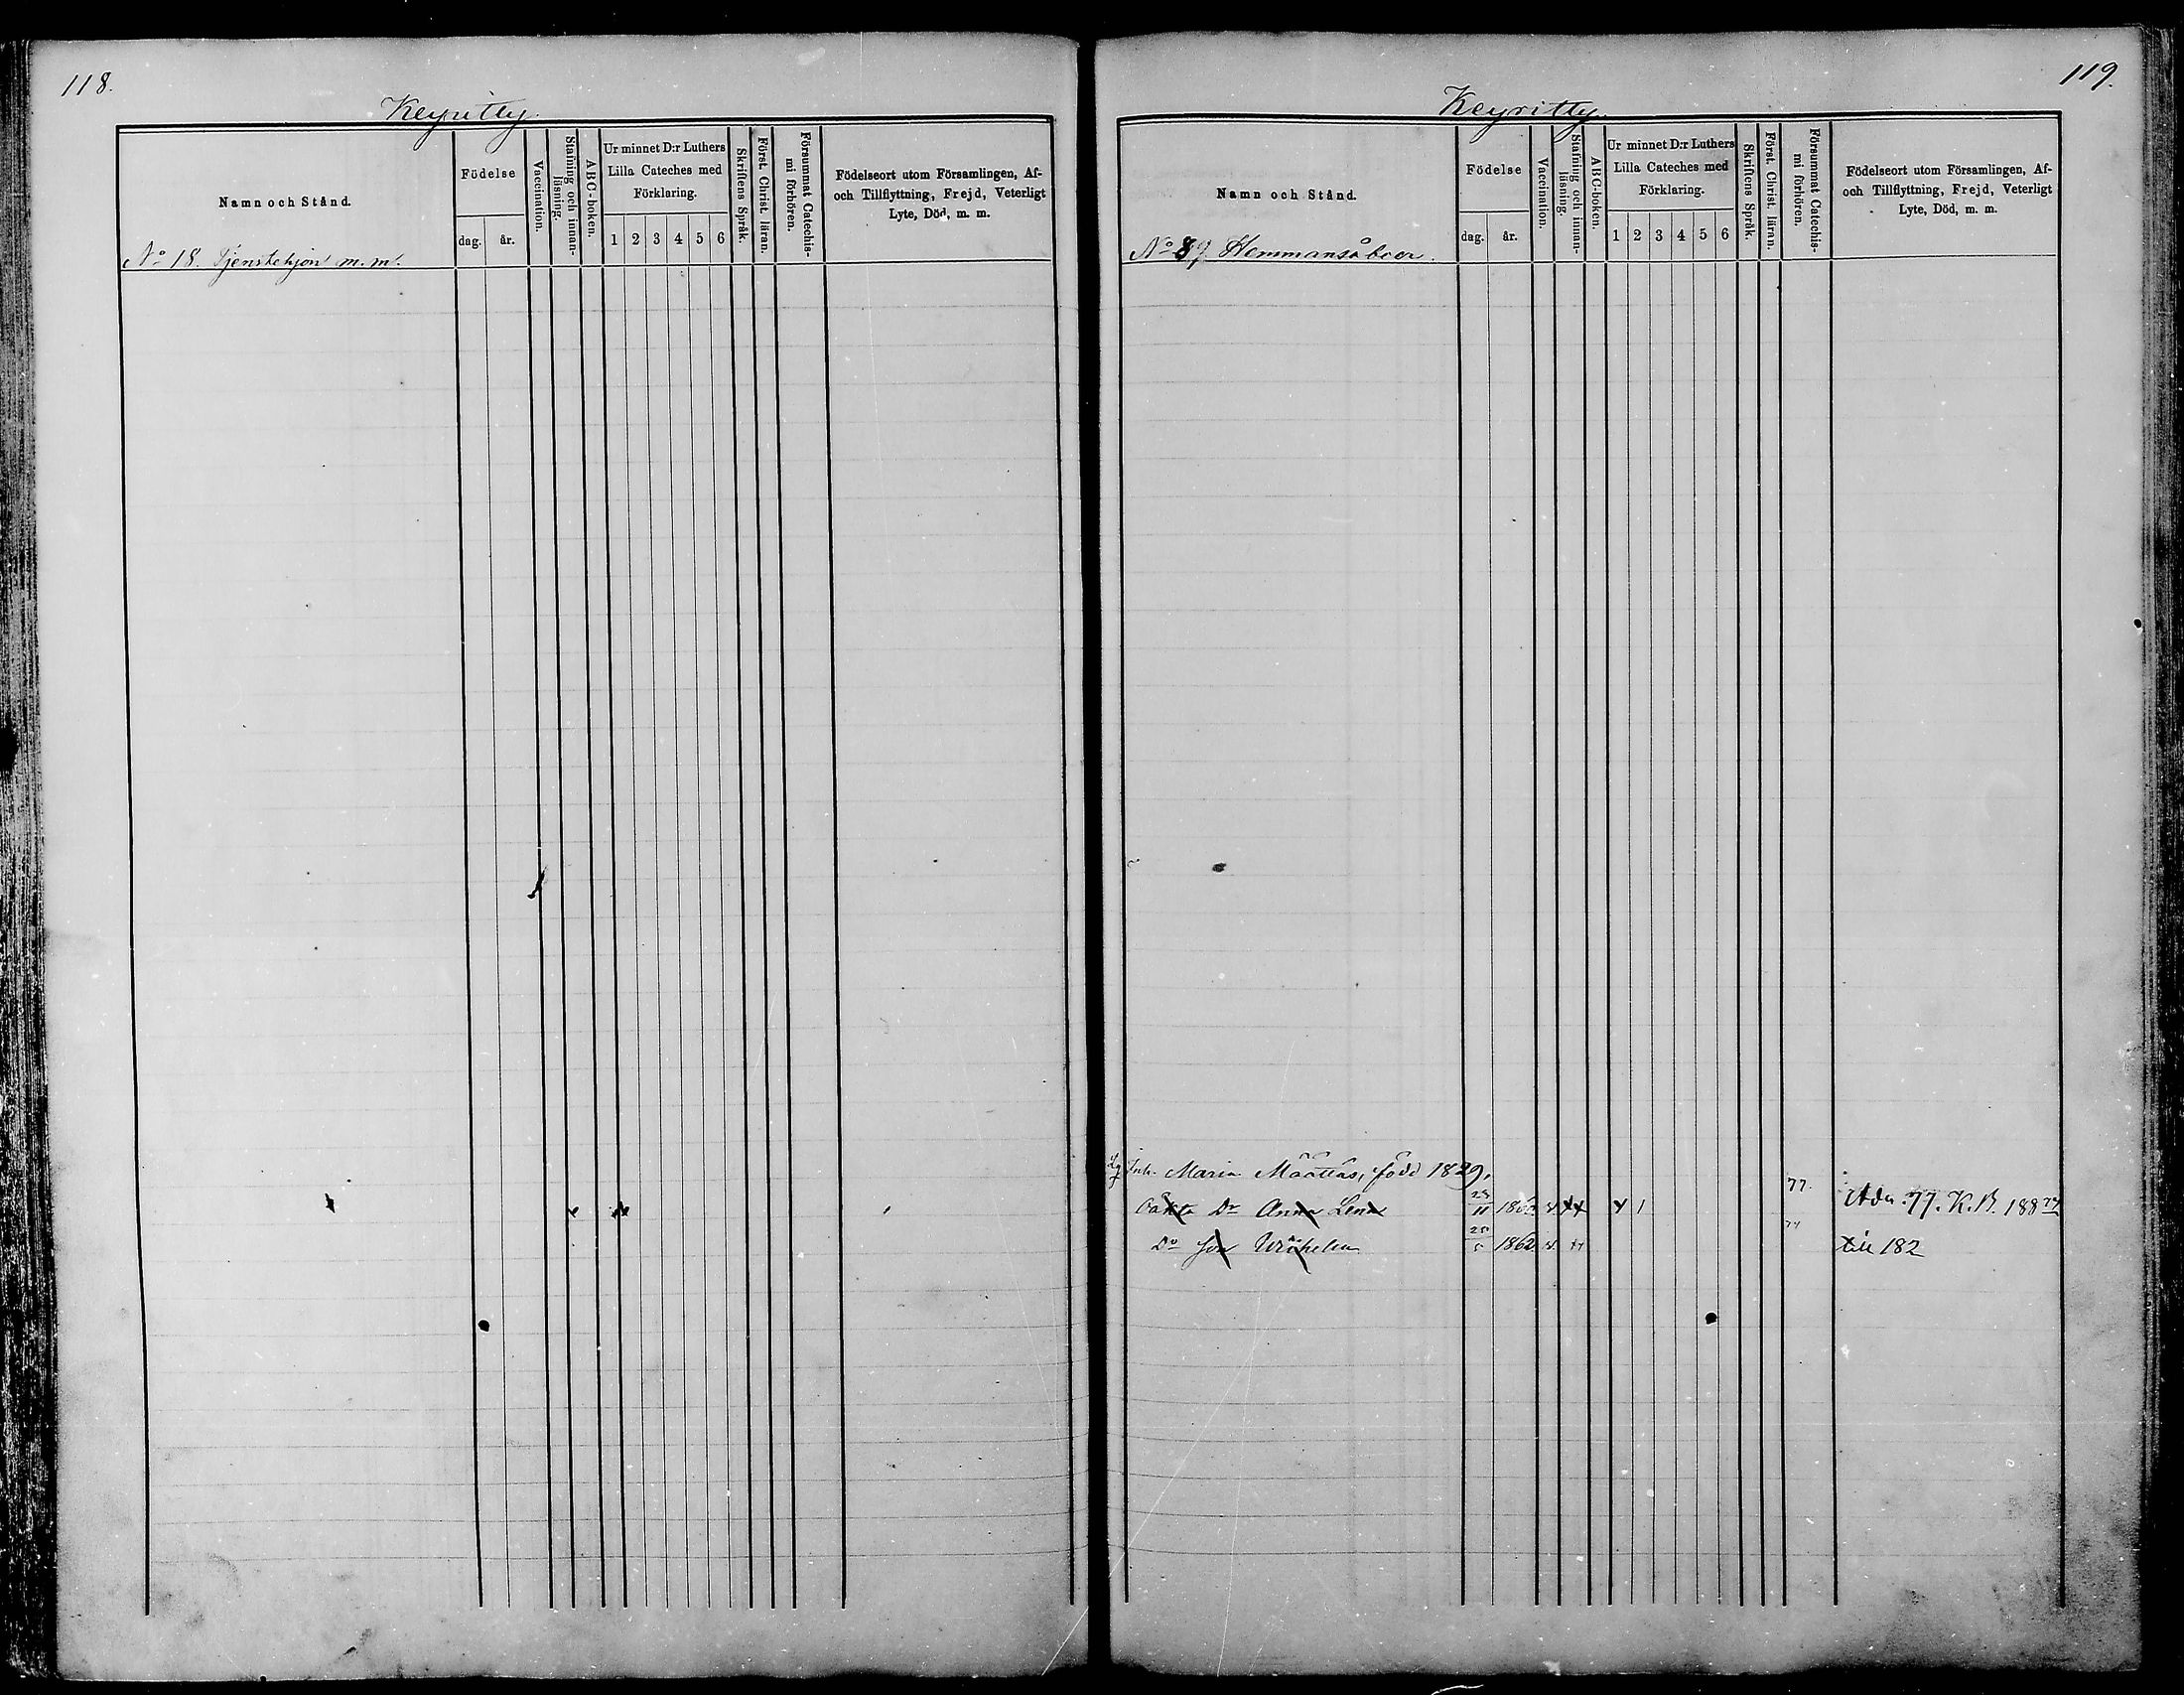 118.
Keyritty.
Namn och Stånd.
Födelse
dag. år.
Vaccination.
Stafning och innan-
läsning.
ABC-boken.
Ur minnet D:r Luthers
Lilla Cateches med
Förklaring.
1 2 3 4 5 6
Skriftens Språk.
Först. Christ. läran.
Försummat Catechis-
mi förhören.
Födelseort utom Församlingen, Af-
och Tillflyttning, Frejd, Veterligt
Lyte, Död, m. m.
No 18. Tjenstehjon m. m.
119.
Keyritty.
Namn och Stånd.
Födelse
dag. år.
Vaccination.
Stafning och innan-
läsning.
ABC-boken.
Ur minnet D:r Luthers
Lilla Cateches med
Förklaring.
1 2 3 4 5 6
Skriftens Språk.
Först. Christ. läran.
Försummat Catechis-
mi förhören.
Födelseort utom Församlingen, Af-
och Tillflyttning, Frejd, Veterligt
Lyte, Död, m. m.
No 89. Hemmansåboer.
Inh. Maria Määttäs, född 1829.
Oäkta Dr Anna Lena 77. K. B. 188
Do Son Wilhelm 1862 till 182